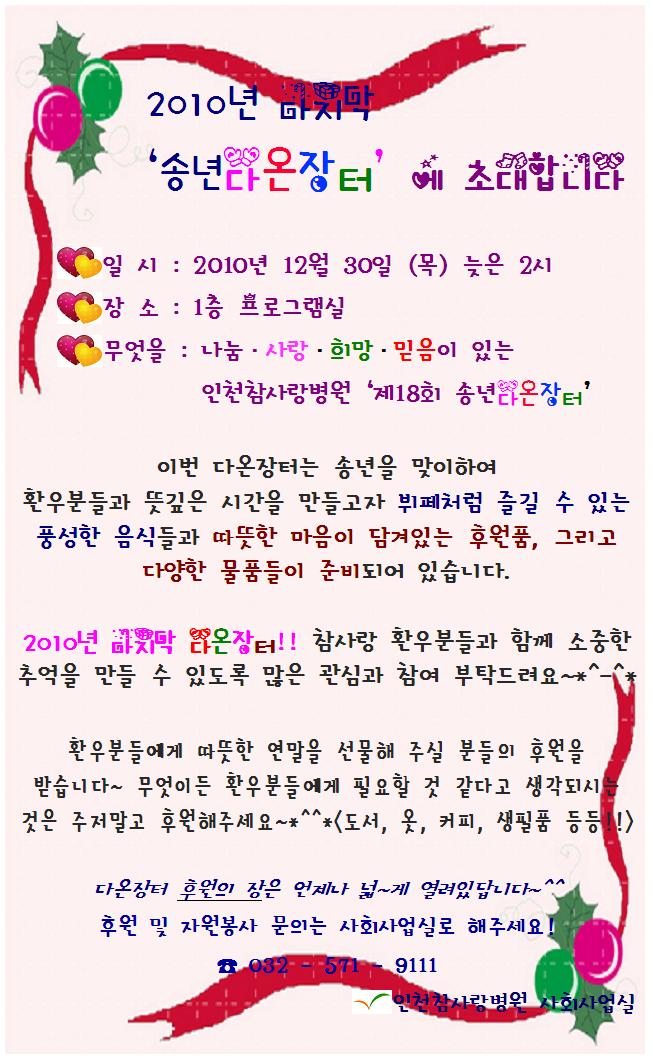 2010년 마지막
'송년다온장터' 에 초대합니다
일 시 : 2010년 12월 30일 (목) 늦은 2시
장 소 : 1층 프로그램실
무엇을 : 나눔·사랑·희망·믿음이 있는
인천참사랑병원 '제18회 송년다온장터'
이번 다온장터는 송년을 맞이하여
환우분들과 뜻깊은 시간을 만들고자 뷔폐처럼 즐길 수 있는
풍성한 음식들과 따뜻한 마음이 담겨있는 후원품, 그리고
다양한 물품들이 준비되어 있습니다.
2010년 마지막 다온장터!! 참사랑 환우분들과 함께 소중한
추억을 만들 수 있도록 많은 관심과 참여 부탁드려요~*^-^*
환우분들에게 따뜻한 연말을 선물해 주실 분들의 후원을
받습니다~ 무엇이든 환우분들에게 필요할 것 같다고 생각되시는
것은 주저말고 후원해주세요~*^^*<도서, 옷, 커피, 생필품 등등!!>
다온장터 후원의 장은 언제나 넓~게 열려있답니다~^^
후원 및 자원봉사 문의는 사회사업실로 해주세요!
☎ 032 - 571 - 9111
인천참사랑병원 사회사업실